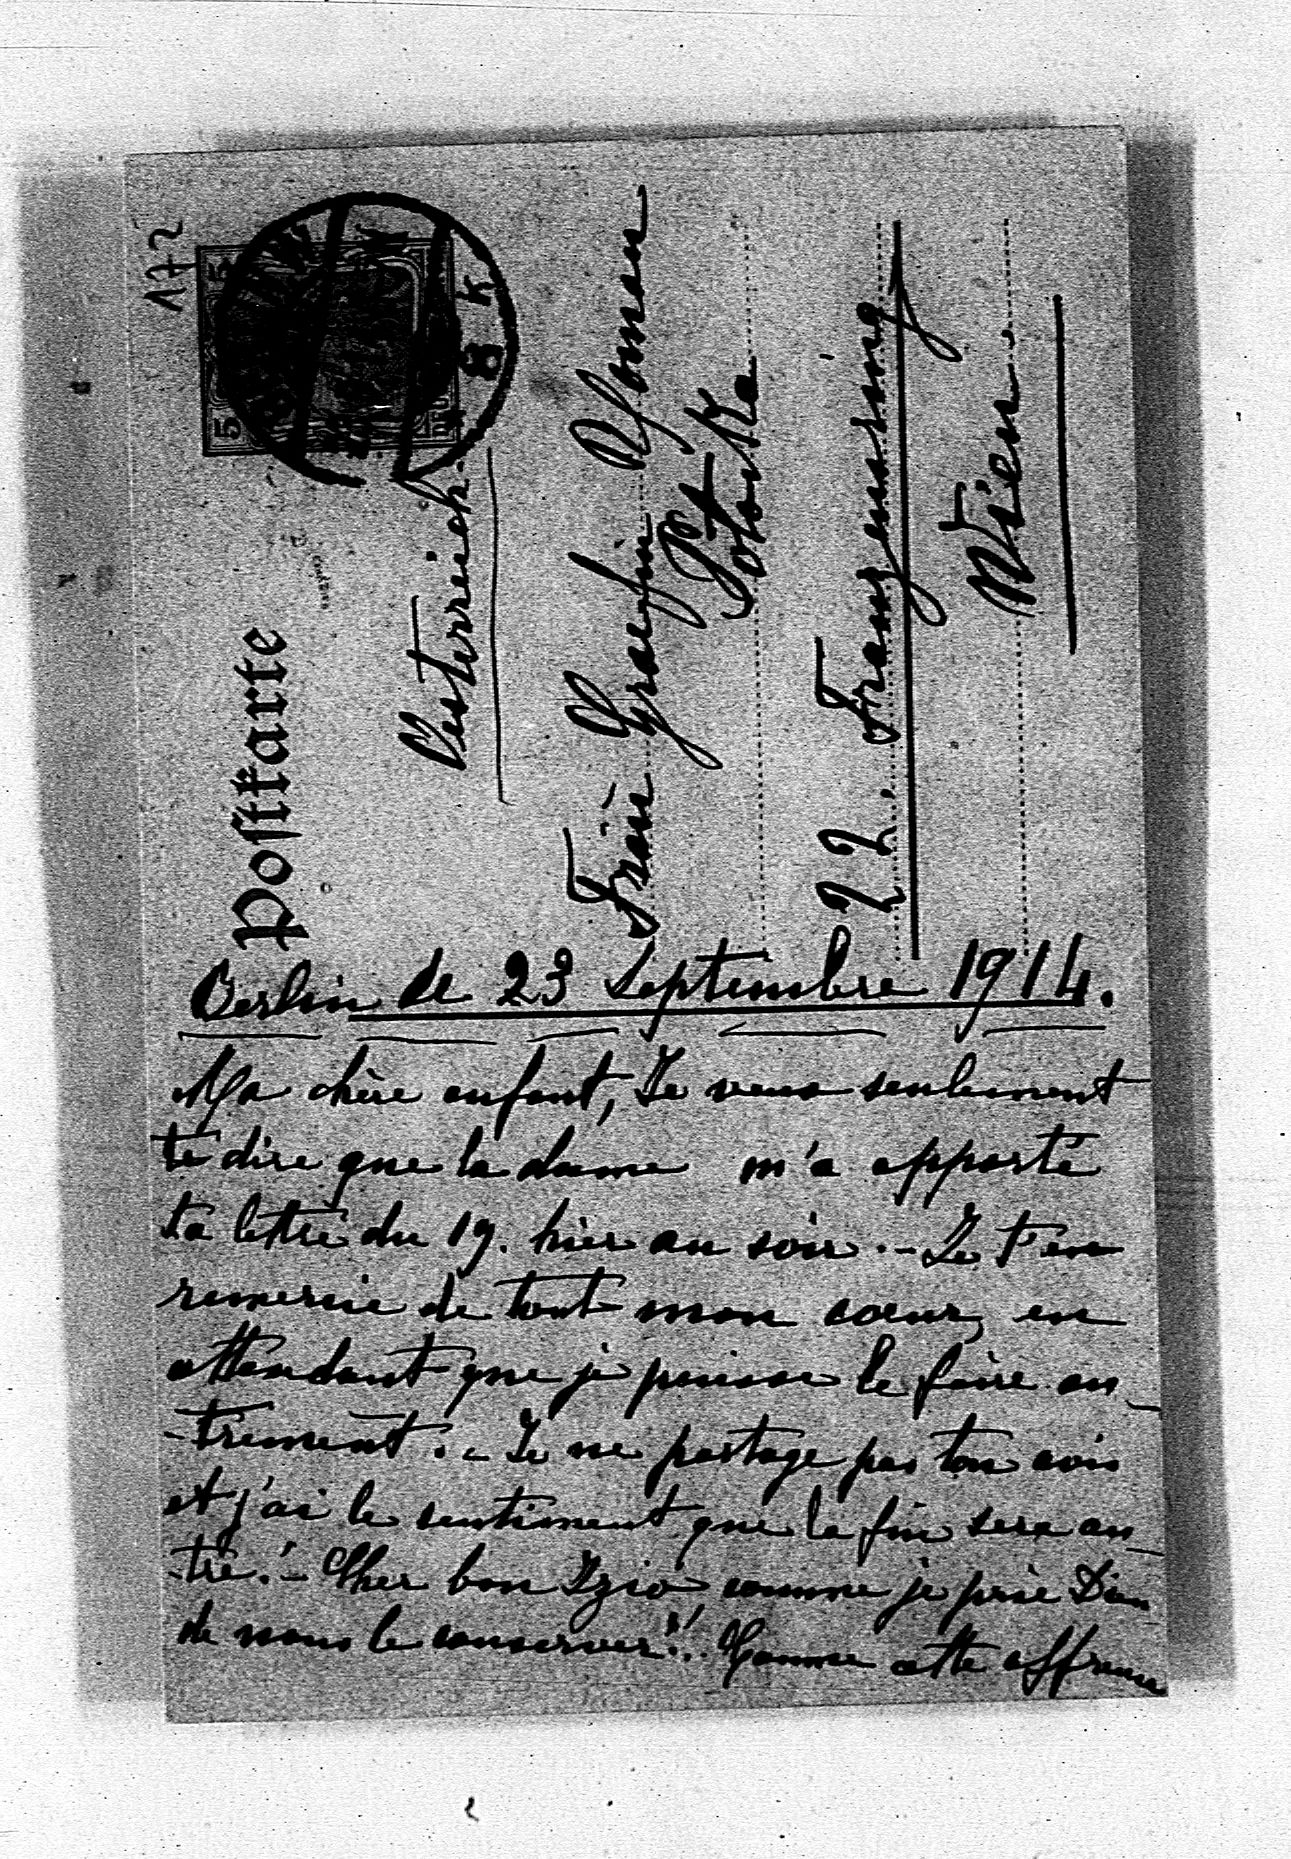 172
5
5
8 k
Postkarte
Oesterreich.
Frau Graefin Roman
Potocka
22. Franzensring
Wien
Berlin de 23 Septembre 1914.
Ma chère enfant, Je veux seulement
te dire que la dame m'a apporté
ta lettre du 19. hier au soir. - Je t'en
remercie de tout mon cœur, en
attendant que je puisse le faire au_
-trement. - Je ne partage pas ton avis
et j'ai le sentiment que la fin sera au_
-tre! - Cher bon Izio comme je prie Dieu
de nous le conserver!!. Comme cette affreuse